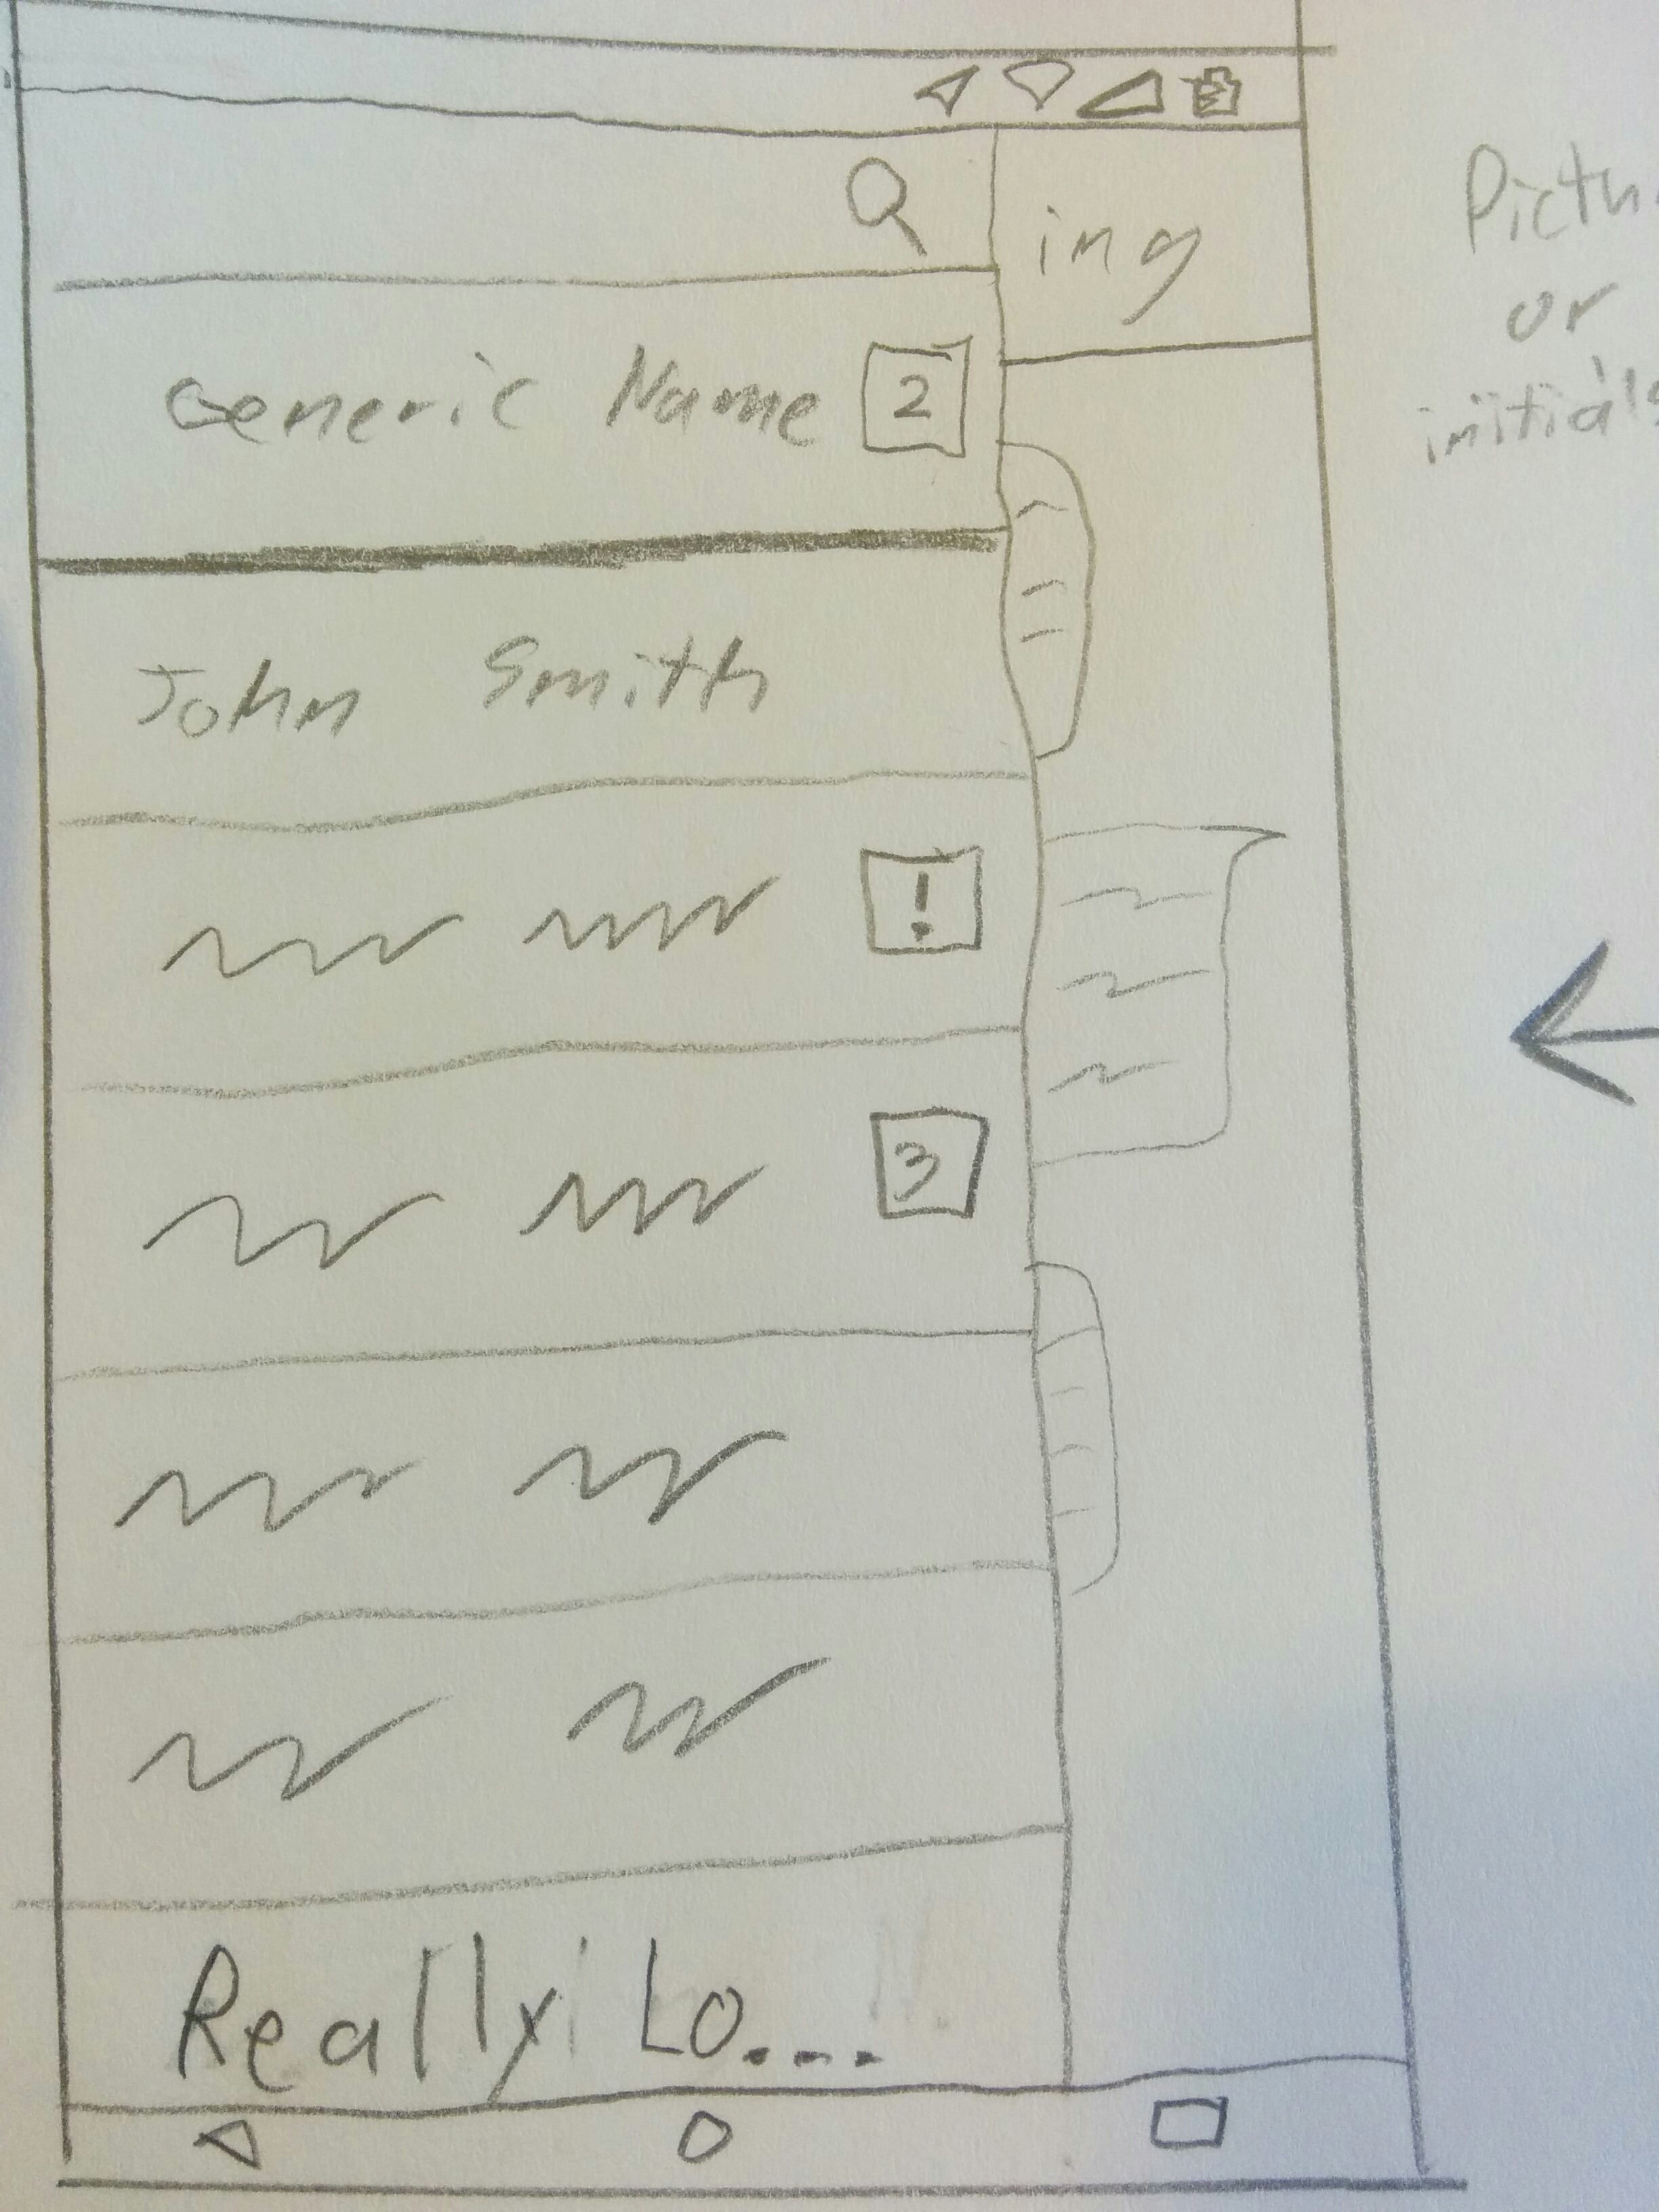 ing
Generic Name 2
John Smith
!
3
Really Lo...
or
initials